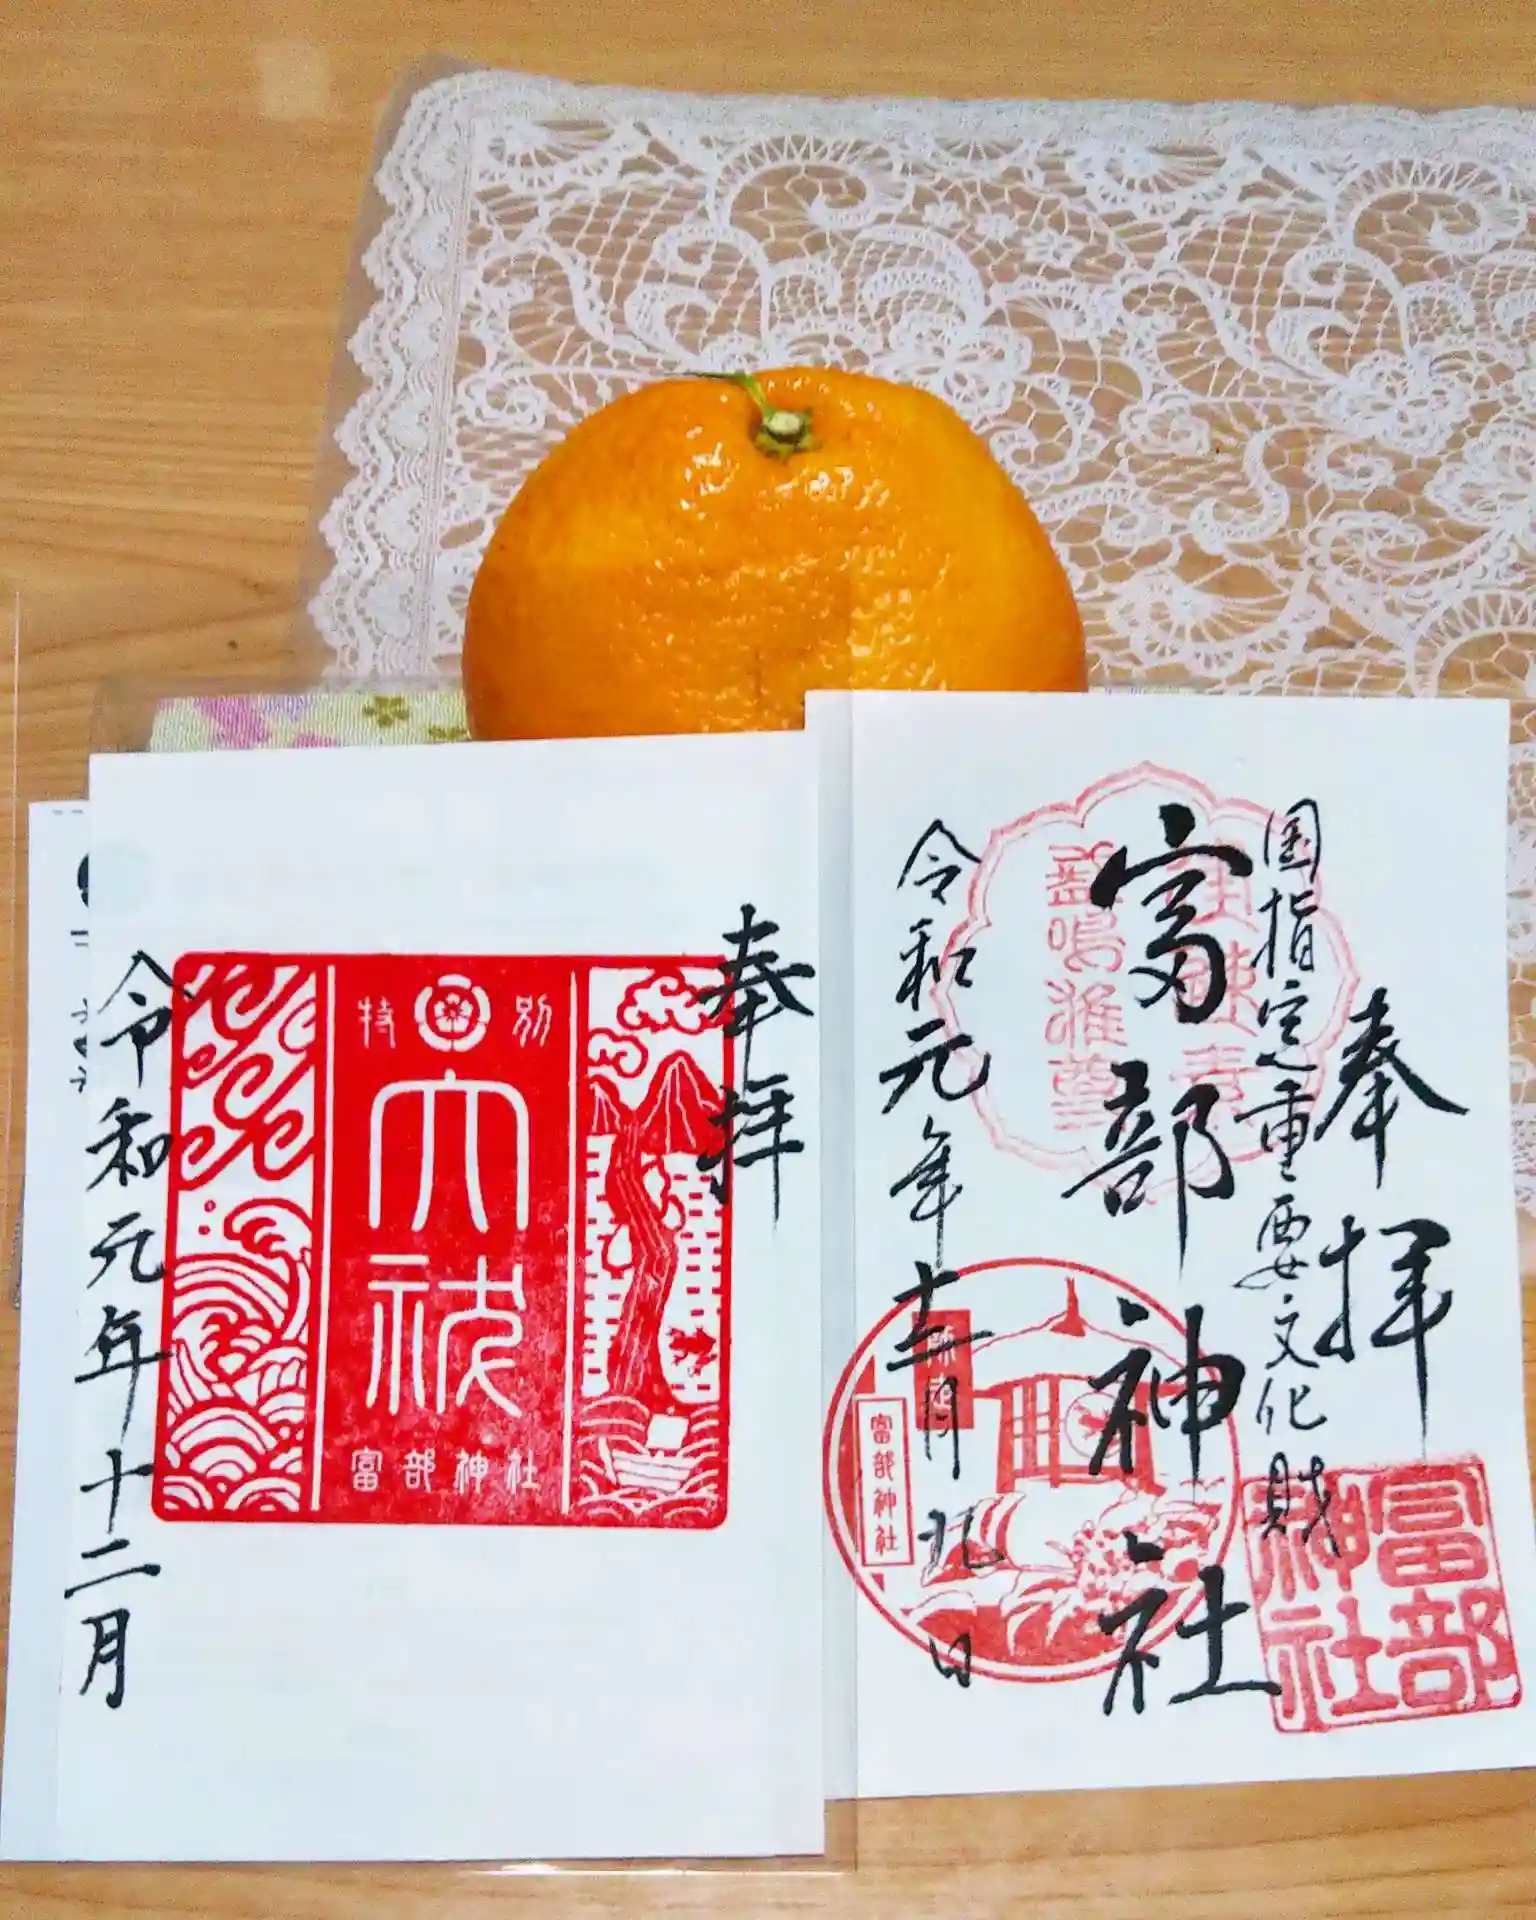 奉拝
特別
大祓
富部神社
令和元年十二月
奉拝
国指定重要文化財
富部神社
令和元年十二月九日
富部神社
富部神社